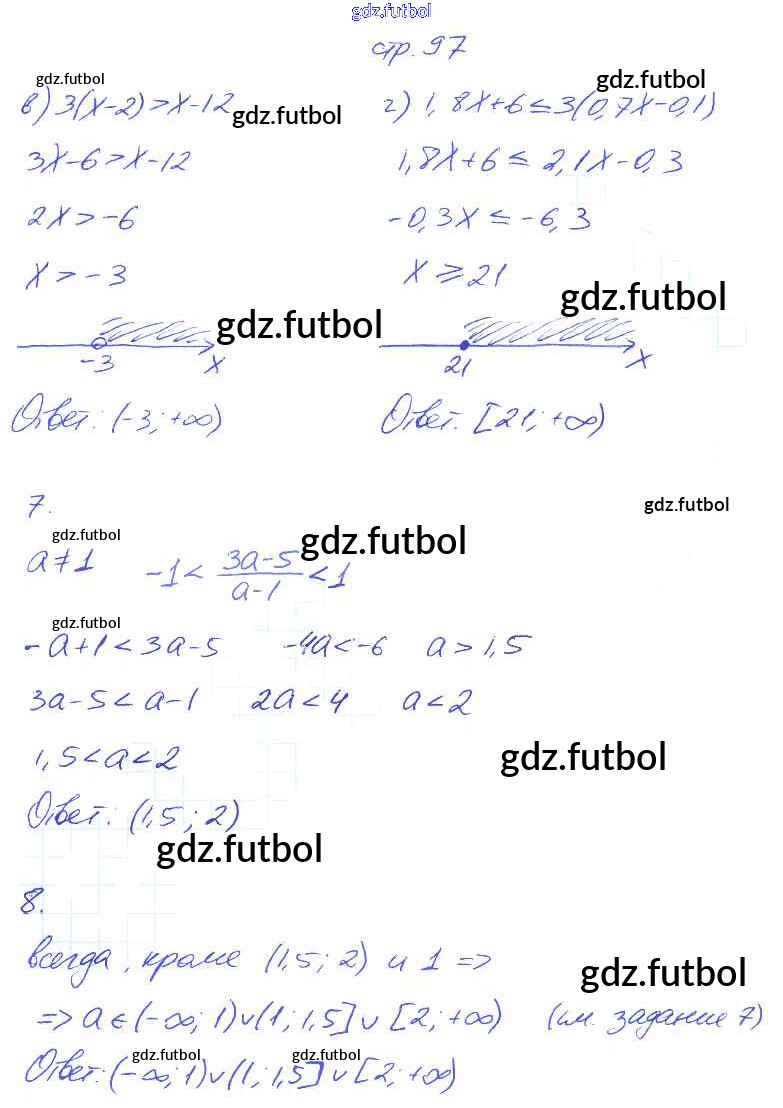 gdz.futbol
стр. 97
gdz.futbol gdz.futbol
в) 3(x-2)>x-12 gdz.futbol
3x-6>x-12
2x>-6
x>-3
gdz.futbol
-3 x
Ответ: (-3; +∞)
г) 1,8x+6≤3(0,7x-0,1)
1,8x+6≤ 2,1x-0,3
-0,3x≤-6,3
x⩾21
gdz.futbol
21 x
Ответ. [21; +∞)
7. gdz.futbol
gdz.futbol gdz.futbol
a≠1 -1< (3a-5)/(a-1) <1
gdz.futbol
-a+1<3a-5 -4a<-6 a>1,5
3a-5<a-1 2a<4 a<2
1,5<a<2 gdz.futbol
Ответ: (1,5; 2)
gdz.futbol
8.
всегда, кроме (1,5; 2) и 1 => gdz.futbol
=> a∈(-∞; 1)∪(1; 1,5]∪[2; +∞) (см. задание 7)
gdz.futbol gdz.futbol
Ответ: (-∞; 1)∪(1; 1,5]∪[2; +∞)